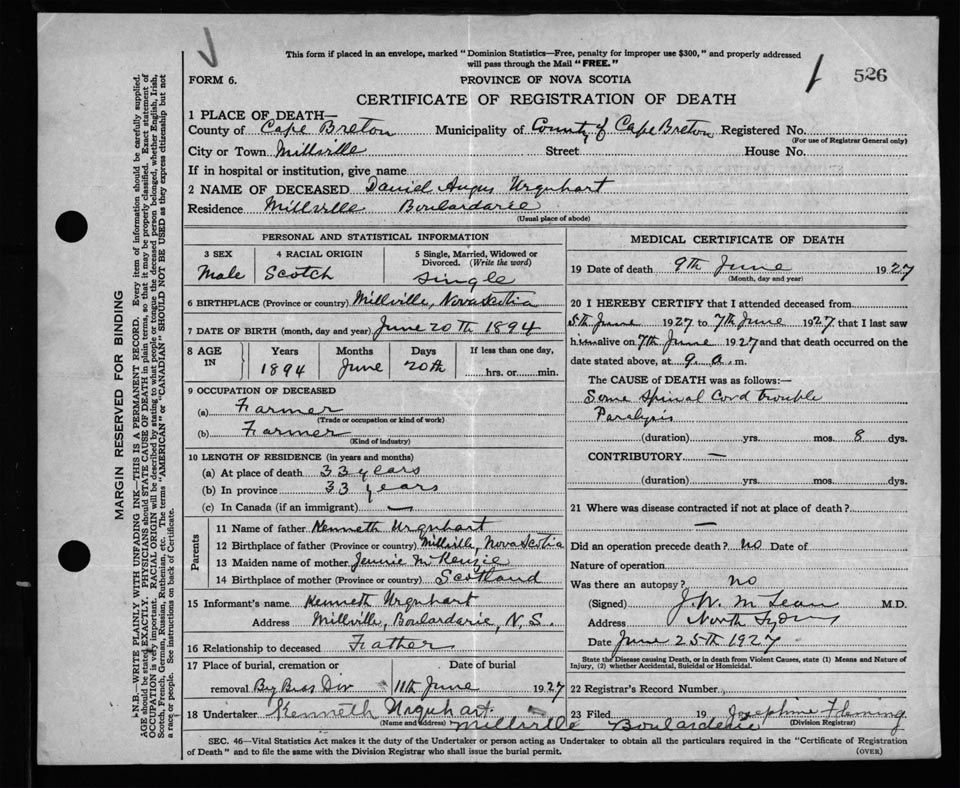 This form if placed in an envelope, marked "Dominion Statistics—Free, penalty for improper use $300," and properly addressed
will pass through the Mail "FREE."
FORM 6.
PROVINCE OF NOVA SCOTIA
526
CERTIFICATE OF REGISTRATION OF DEATH
1 PLACE OF DEATH—
County of Cape Breton Municipality of County of Cape Breton Registered No.
(For use of Registrar General only)
City or Town Millville Street House No.
If in hospital or institution, give name
2 NAME OF DECEASED Daniel Angus Urquhart
Residence Millville Boulardarie
(Usual place of abode)
PERSONAL AND STATISTICAL INFORMATION
3 SEX 4 RACIAL ORIGIN 5 Single, Married, Widowed or
Divorced. (Write the word)
Male Scotch Single
6 BIRTHPLACE (Province or country) Millville, Nova Scotia
7 DATE OF BIRTH (month, day and year) June 20th 1894
8 AGE IN Years Months Days If less than one day,
1894 June 20th hrs. or min.
9 OCCUPATION OF DECEASED
(a) Farmer
(Trade or occupation or kind of work)
(b) Farmer
(Kind of industry)
10 LENGTH OF RESIDENCE (in years and months)
(a) At place of death 33 years
(b) In province 33 years
(c) In Canada (if an immigrant) —
Parents
11 Name of father Kenneth Urquhart
12 Birthplace of father (Province or country) Millville, Nova Scotia
13 Maiden name of mother Jennie McKenzie
14 Birthplace of mother (Province or country) Scotland
15 Informant's name Kenneth Urquhart
Address Millville, Boulardarie, N.S.
16 Relationship to deceased Father
17 Place of burial, cremation or Date of burial
removal 11th June 1927
18 Undertaker Kenneth Urquhart
(Name and address) Millville Boulardarie
MEDICAL CERTIFICATE OF DEATH
19 Date of death 9th June 1927
(Month, day and year)
20 I HEREBY CERTIFY that I attended deceased from
5th June 1927 to 7th June 1927 that I last saw
him alive on 7th June 1927 and that death occurred on the
date stated above, at 9 a. m.
The CAUSE of DEATH was as follows:—
Some Spinal Cord trouble
Paralysis
(duration) yrs. mos. 8 dys.
CONTRIBUTORY. —
(duration) yrs. mos. dys.
21 Where was disease contracted if not at place of death?
—
Did an operation precede death? no Date of
Nature of operation
Was there an autopsy? no
(Signed) J.W. McLean M.D.
Address North Sydney
Date June 25th 1927
State the Disease causing Death, or in death from Violent Causes, state (1) Means and Nature of
Injury, (2) whether Accidental, Suicidal or Homicidal.
22 Registrar's Record Number
23 Filed 19 Josephine Fleming
(Division Registrar)
SEC. 46—Vital Statistics Act makes it the duty of the Undertaker or person acting as Undertaker to obtain all the particulars required in the "Certificate of Registration
of Death" and to file the same with the Division Registrar who shall issue the burial permit.
(OVER)
MARGIN RESERVED FOR BINDING
N.B.—WRITE PLAINLY WITH UNFADING INK—THIS IS A PERMANENT RECORD. Every item of information should be carefully supplied.
AGE should be stated EXACTLY. PHYSICIANS should STATE CAUSE OF DEATH in plain terms, so that it may be properly classified. Exact statement of
OCCUPATION is very important. RACIAL ORIGIN will be described by stating to what people or tongue the deceased person belonged, whether English, Irish,
Scotch, French, German, Russian, Ruthenian, etc. The terms "AMERICAN" or "CANADIAN" SHOULD NOT BE USED as they express citizenship but not
a race or people. See instructions on back of Certificate.